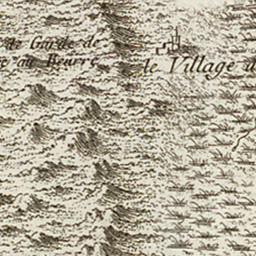 de Garde de
au Beurre
le Village d